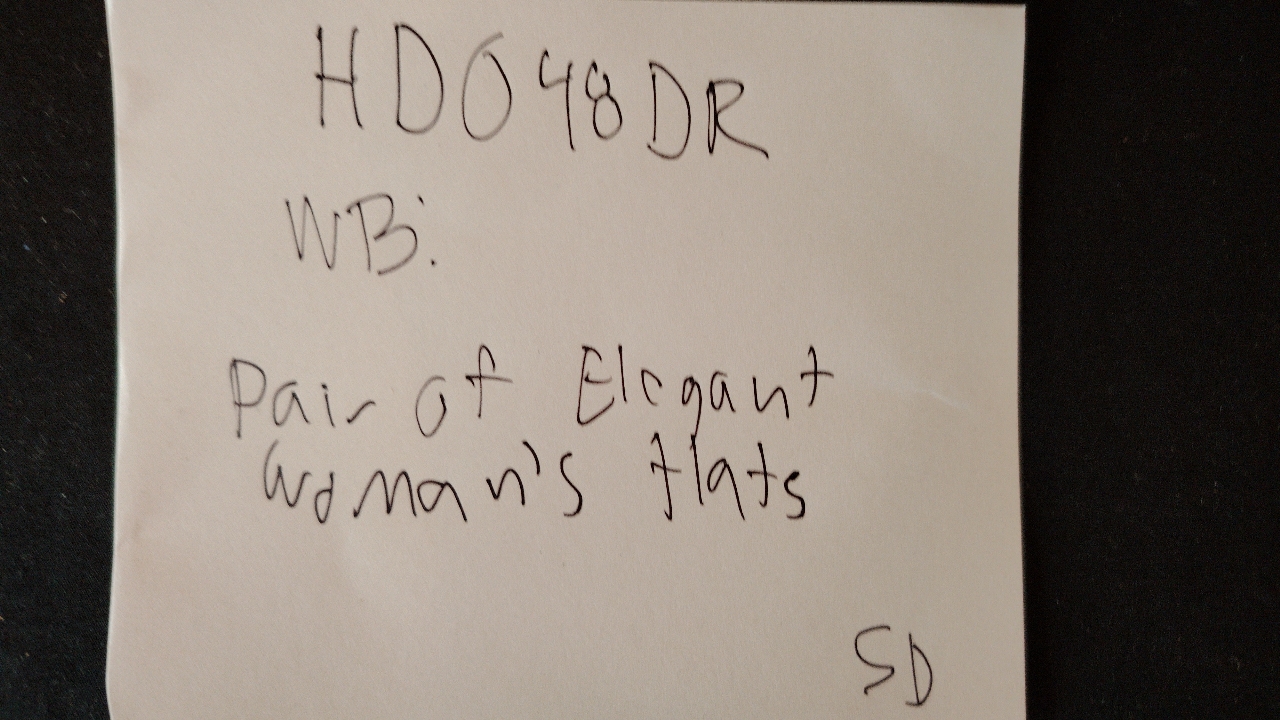 HD048DR
WB:
Pair of Elegant
Woman's flats
SD